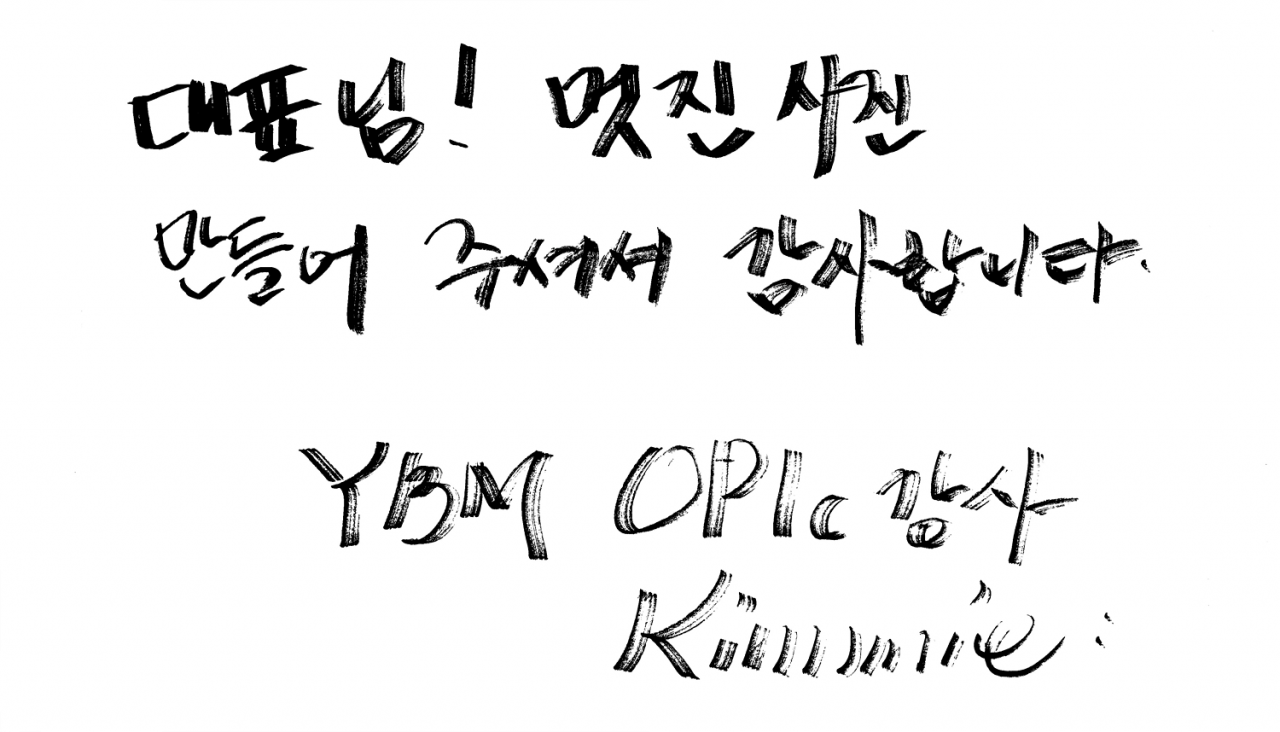 대표님! 멋진 사진
만들어 주셔서 감사합니다.
YBM OPIc 강사
Kimmie :